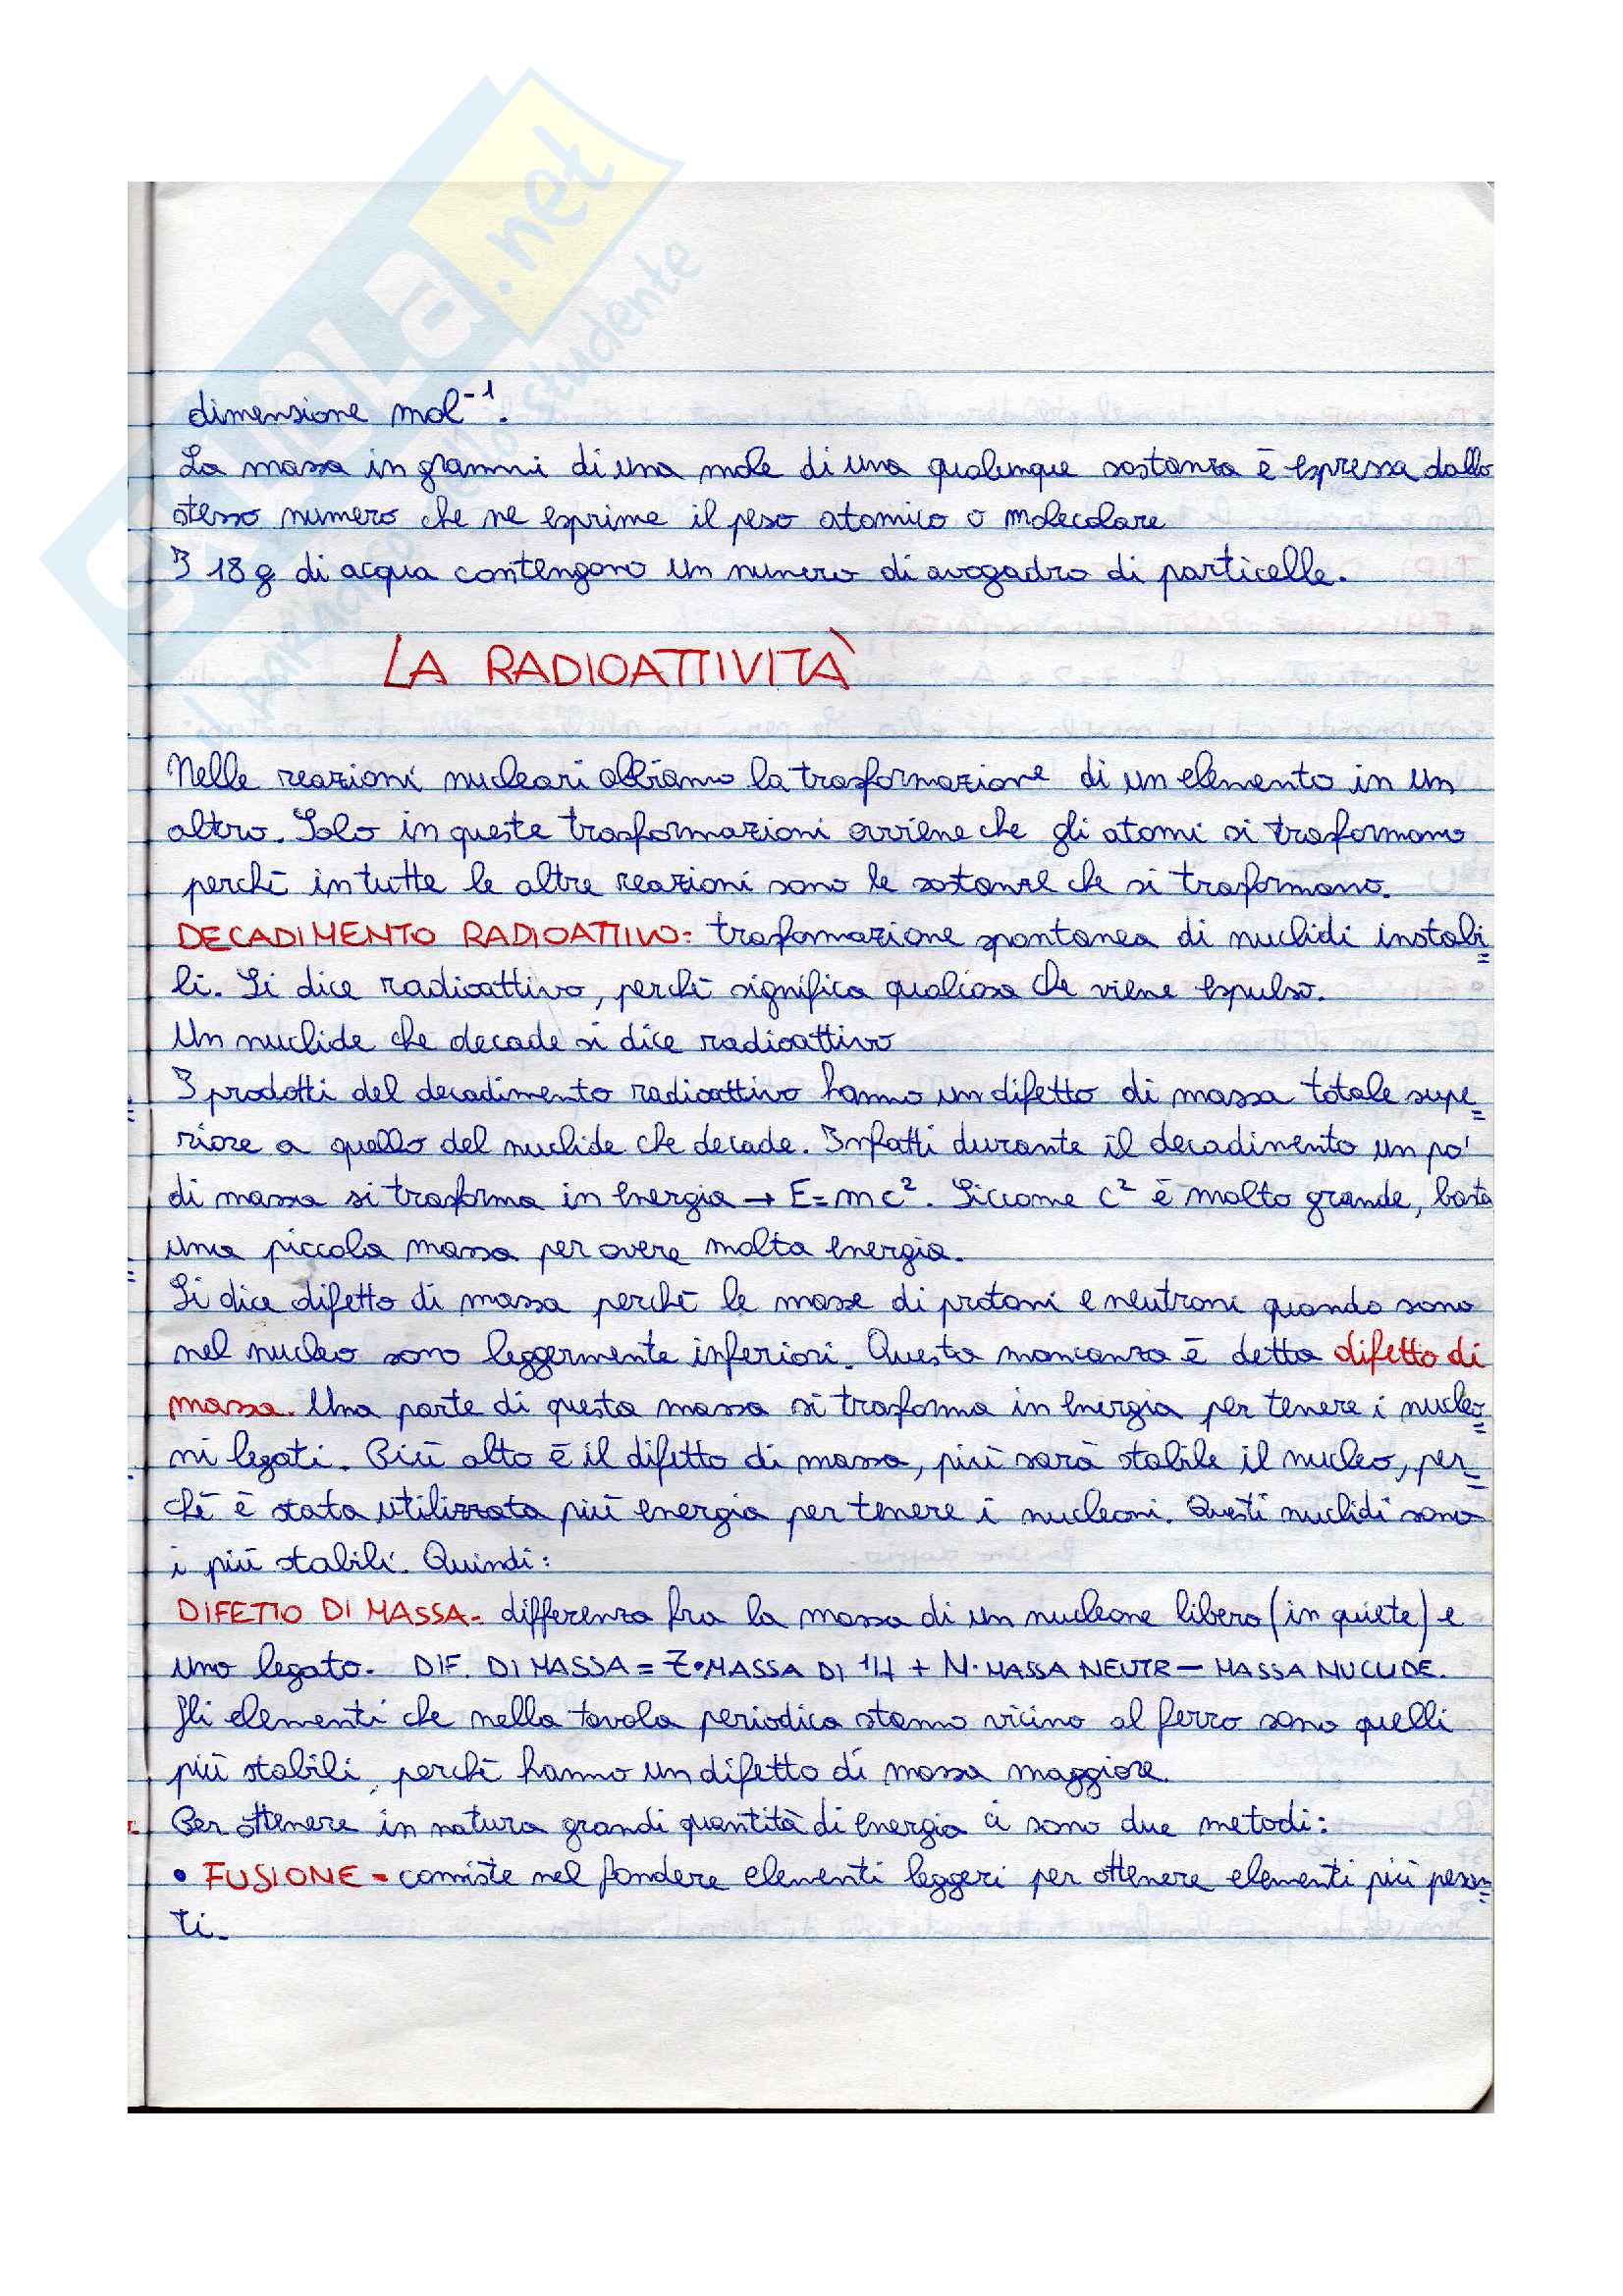 dimensione mol⁻¹.
La massa in grammi di una mole di una qualunque sostanza è espressa dallo
stesso numero che ne esprime il peso atomico o molecolare
I 18 g di acqua contengono un numero di avogadro di particelle.
LA RADIOATTIVITÀ
Nelle reazioni nucleari abbiamo la trasformazione di un elemento in un
altro. Solo in queste trasformazioni avviene che gli atomi si trasformano
perché in tutte le altre reazioni sono le sostanze che si trasformano.
DECADIMENTO RADIOATTIVO= trasformazione spontanea di nuclidi instabi=
li. Si dice radioattivo, perché significa qualcosa che viene espulso.
Un nuclide che decade si dice radioattivo
I prodotti del decadimento radioattivo hanno un difetto di massa totale supe=
riore a quello del nuclide che decade. Infatti durante il decadimento un po'
di massa si trasforma in energia → E=mc². Siccome c² è molto grande, basta
una piccola massa per avere molta energia.
Si dice difetto di massa perché le masse di protoni e neutroni quando sono
nel nucleo sono leggermente inferiori. Questa mancanza è detta difetto di
massa. Una parte di questa massa si trasforma in energia per tenere i nucleo=
ni legati. Più alto è il difetto di massa, più sarà stabile il nucleo, per=
ché è stata utilizzata più energia per tenere i nucleoni. Questi nuclidi sono
i più stabili. Quindi:
DIFETTO DI MASSA= differenza fra la massa di un nucleone libero (in quiete) e
uno legato. DIF. DI MASSA = Z•MASSA DI 1H + N•MASSA NEUTR – MASSA NUCLIDE.
Gli elementi che nella tavola periodica stanno vicino al ferro sono quelli
più stabili, perché hanno un difetto di massa maggiore.
Per ottenere in natura grandi quantità di energia ci sono due metodi:
• FUSIONE = consiste nel fondere elementi leggeri per ottenere elementi più pesan=
ti.
.net